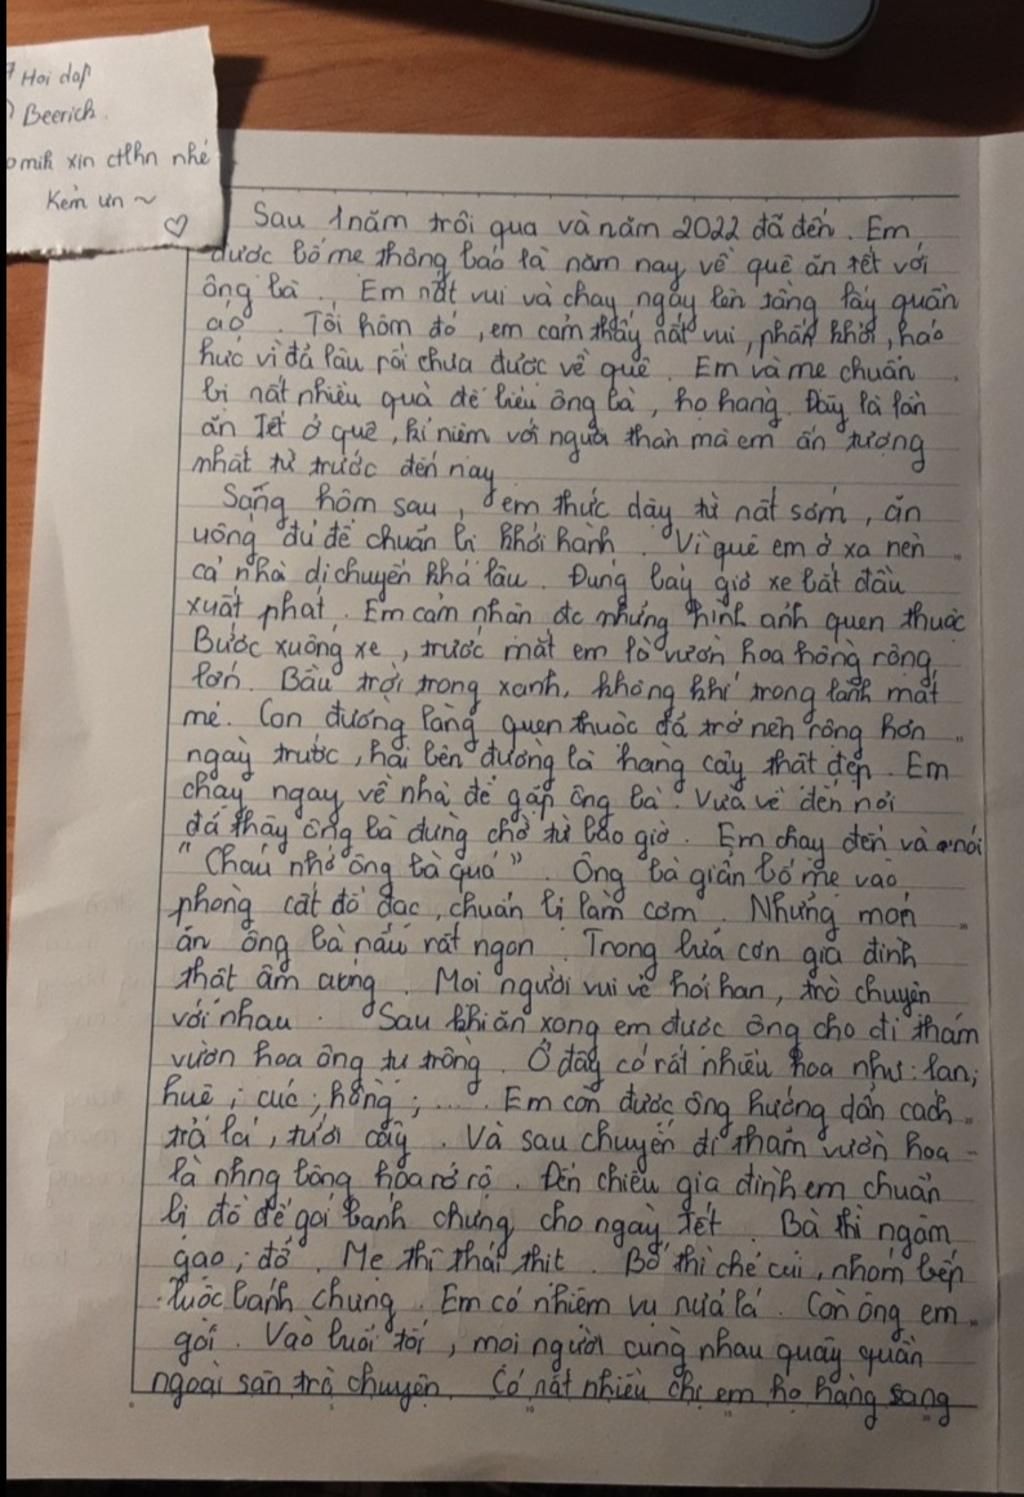 Hoi dap
Beerich.
mih xin ctlhn nhé
Kẻm ưn ~
Sau 1 năm trôi qua và năm 2022 đã đến. Em
được bố mẹ thông báo là năm nay về quê ăn tết với
ông bà. Em nất vui và chạy ngay lên tầng lấy quần
áo. Tối hôm đó, em cảm thấy nất vui, phấn khởi, háo
hức vì đã lâu rồi chưa được về quê. Em và mẹ chuẩn
bị nất nhiều quà để biếu ông bà, họ hàng. Đây là lần
ăn Tết ở quê, kỉ niệm với người thân mà em ấn tượng
nhất từ trước đến nay
Sáng hôm sau, em thức dậy từ nất sớm, ăn
uống đủ để chuẩn bị khởi hành. Vì quê em ở xa nên
cả nhà di chuyển khá lâu. Đúng bảy giờ xe bắt đầu
xuất phát. Em cảm nhận đc những hình ảnh quen thuộc
Bước xuống xe, trước mắt em là vườn hoa hồng rộng
lớn. Bầu trời trong xanh, không khí trong lành mát
mẻ. Con đường làng quen thuộc đã trở nên rộng hơn
ngày trước, hai bên đường là hàng cây thật đẹp. Em
chạy ngay về nhà để gặp ông bà. Vừa về đến nơi
đã thấy ông bà đứng chờ từ bao giờ. Em chạy đến và nói
" Cháu nhớ ông bà quá ". Ông bà giản bố mẹ vào
phòng cất đồ đạc, chuẩn bị làm cơm. Những món
ăn ông bà nấu rất ngon. Trong bữa cơn gia đình
thật ấm cúng. Mọi người vui vẻ hỏi han, trò chuyện
với nhau. Sau khi ăn xong em được ông cho đi thăm
vườn hoa ông tự trồng. Ở đây có rất nhiều hoa như: lan;
huệ; cúc; hồng; .... Em còn được ông hướng dẫn cách
trả lá, tưới cây. Và sau chuyến đi thăm vườn hoa
là nhng bông hoa rớ rộ. Đến chiều gia đình em chuẩn
bị đồ để gói bánh chưng cho ngày Tết. Bà thì ngâm
gạo; đỗ. Mẹ thì thái thịt. Bố thì chẻ củi, nhóm bếp
luộc bánh chưng. Em có nhiệm vụ nửa lá. Còn ông em
gói. Vào buổi tối, mọi người cùng nhau quây quần
ngoài sân trò chuyện. Có nất nhiều chị em họ hàng sang